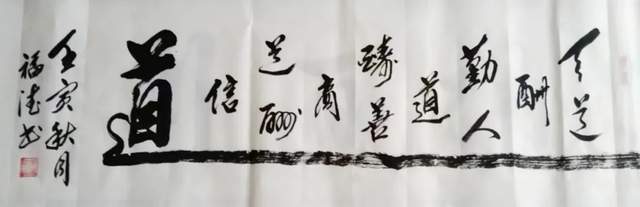 天道
酬
勤人
道
臻善
商
道酬
信
道
壬寅秋月
福
书